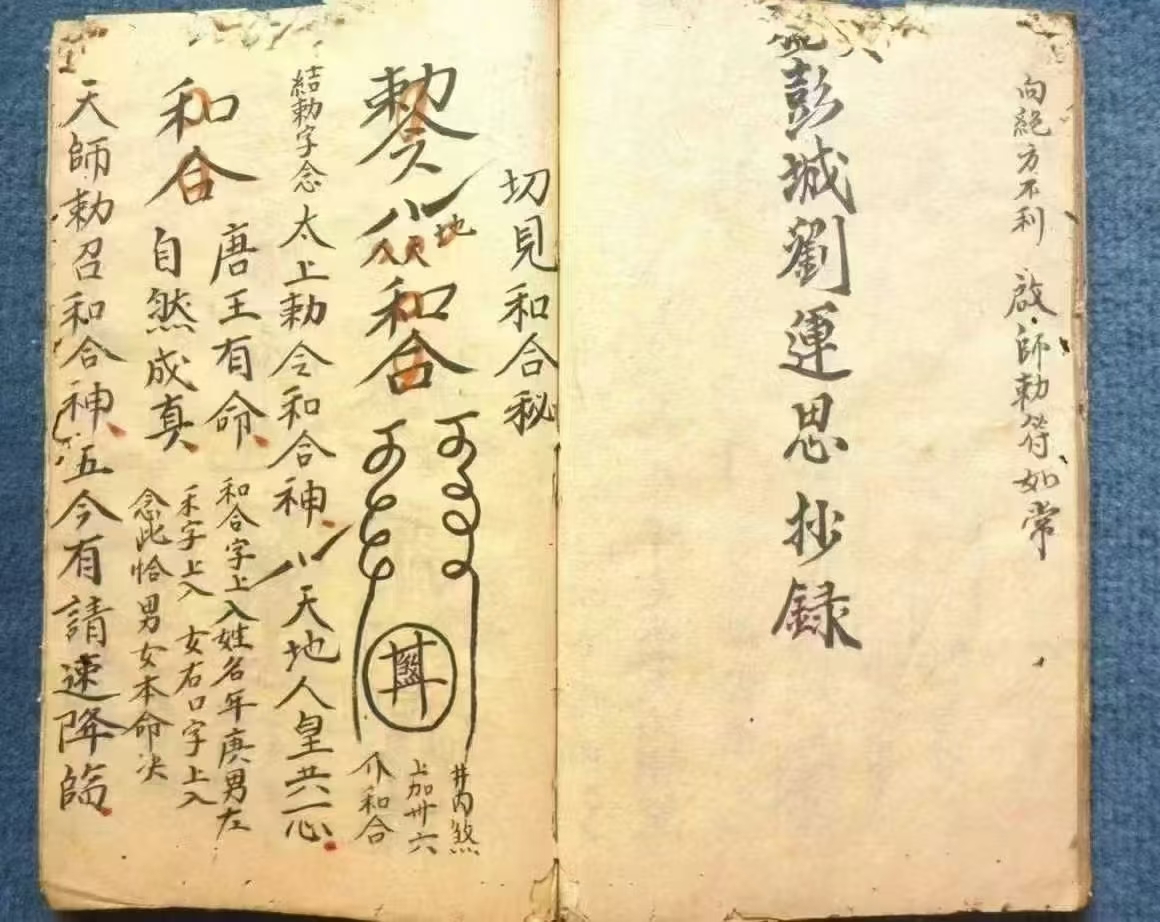 向絕方不利 啟師勅符如常
彭城劉運思抄録
切見和合秘
勅令
八
地
人天
和合
井內煞
上加卅六
个和合
煞
結勅字念太上勅令和合神八天地人皇共一心
唐王有命
和合字上入姓名年庚男左
禾字上入女右口字上入
念此恰男女本命决
和合自然成真
天師勅召和合神五今有請速降臨